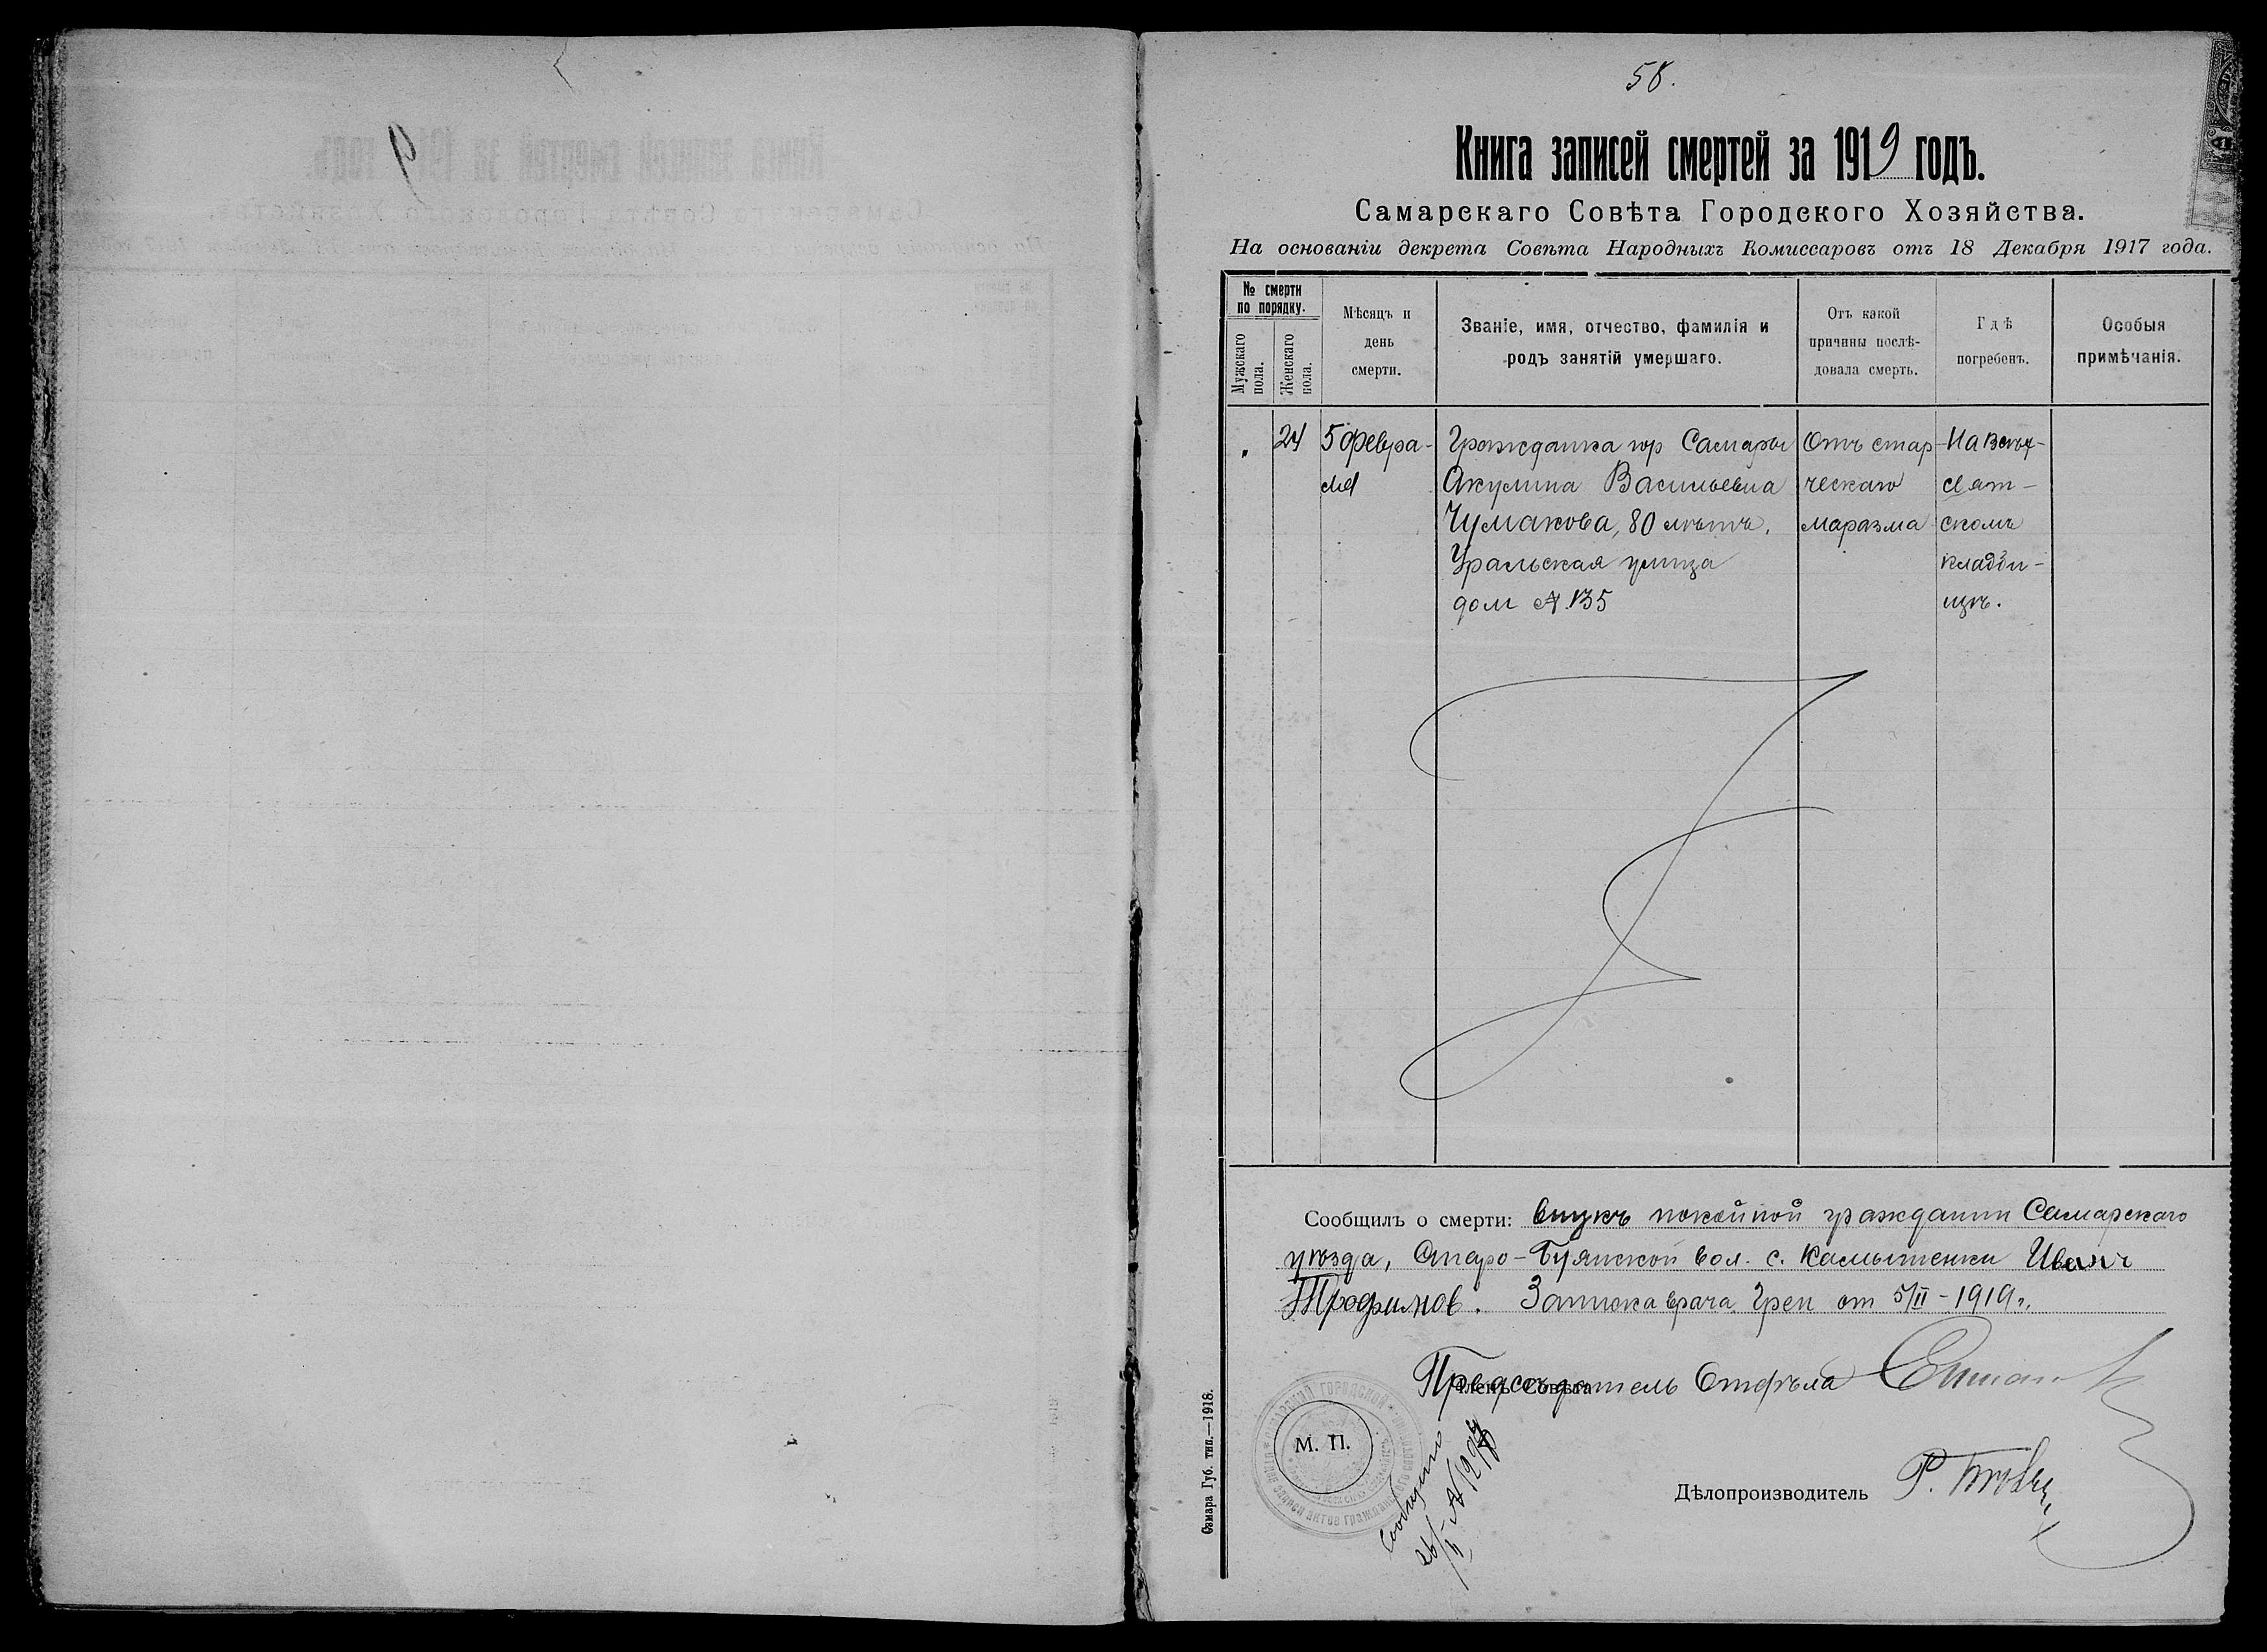 58.
Книга записей смертей за 1919 годъ.
Самарскаго Совѣта Городского Хозяйства.
На основаніи декрета Совѣта Народныхъ Комиссаровъ отъ 18 Декабря 1917 года.
№ смерти по порядку.
Мужскаго пола.
Женскаго пола.
Мѣсяцъ и день смерти.
Званіе, имя, отчество, фамилія и родъ занятій умершаго.
Отъ какой причины послѣдовала смерть.
Гдѣ погребенъ.
Особыя примѣчанія.
24
5 Февра-
ля
Гражданка гор Самары
Акулина Васильевна
Чумакова, 80 лѣтъ,
Уральская улица
дом № 135
Отъ стар
ческаго
маразма
На Всѣх-
свят-
скомъ
кладби-
щѣ.
Сообщилъ о смерти: внукъ покойной гражданин Самарскаго
уѣзда, Старо-Буянской вол. с. Камышенки Иванъ
Трофимов. Записка врача Грен от 5/II - 1919 г.
Членъ Совѣта
Предсѣдатель Отдѣла
М. П.
Сообщено
26/II
Дѣлопроизводитель
Самара Губ. тип.—1918.